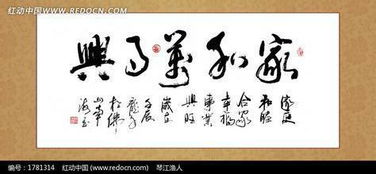 红动中国 WWW.REDOCN.COM
家和萬事興
家庭
和睦
合家
幸福
事業
興旺
歲在
壬辰
龍年
於佛
山
编号：1781314 红动中国 (www.redocn.com) 琴江渔人